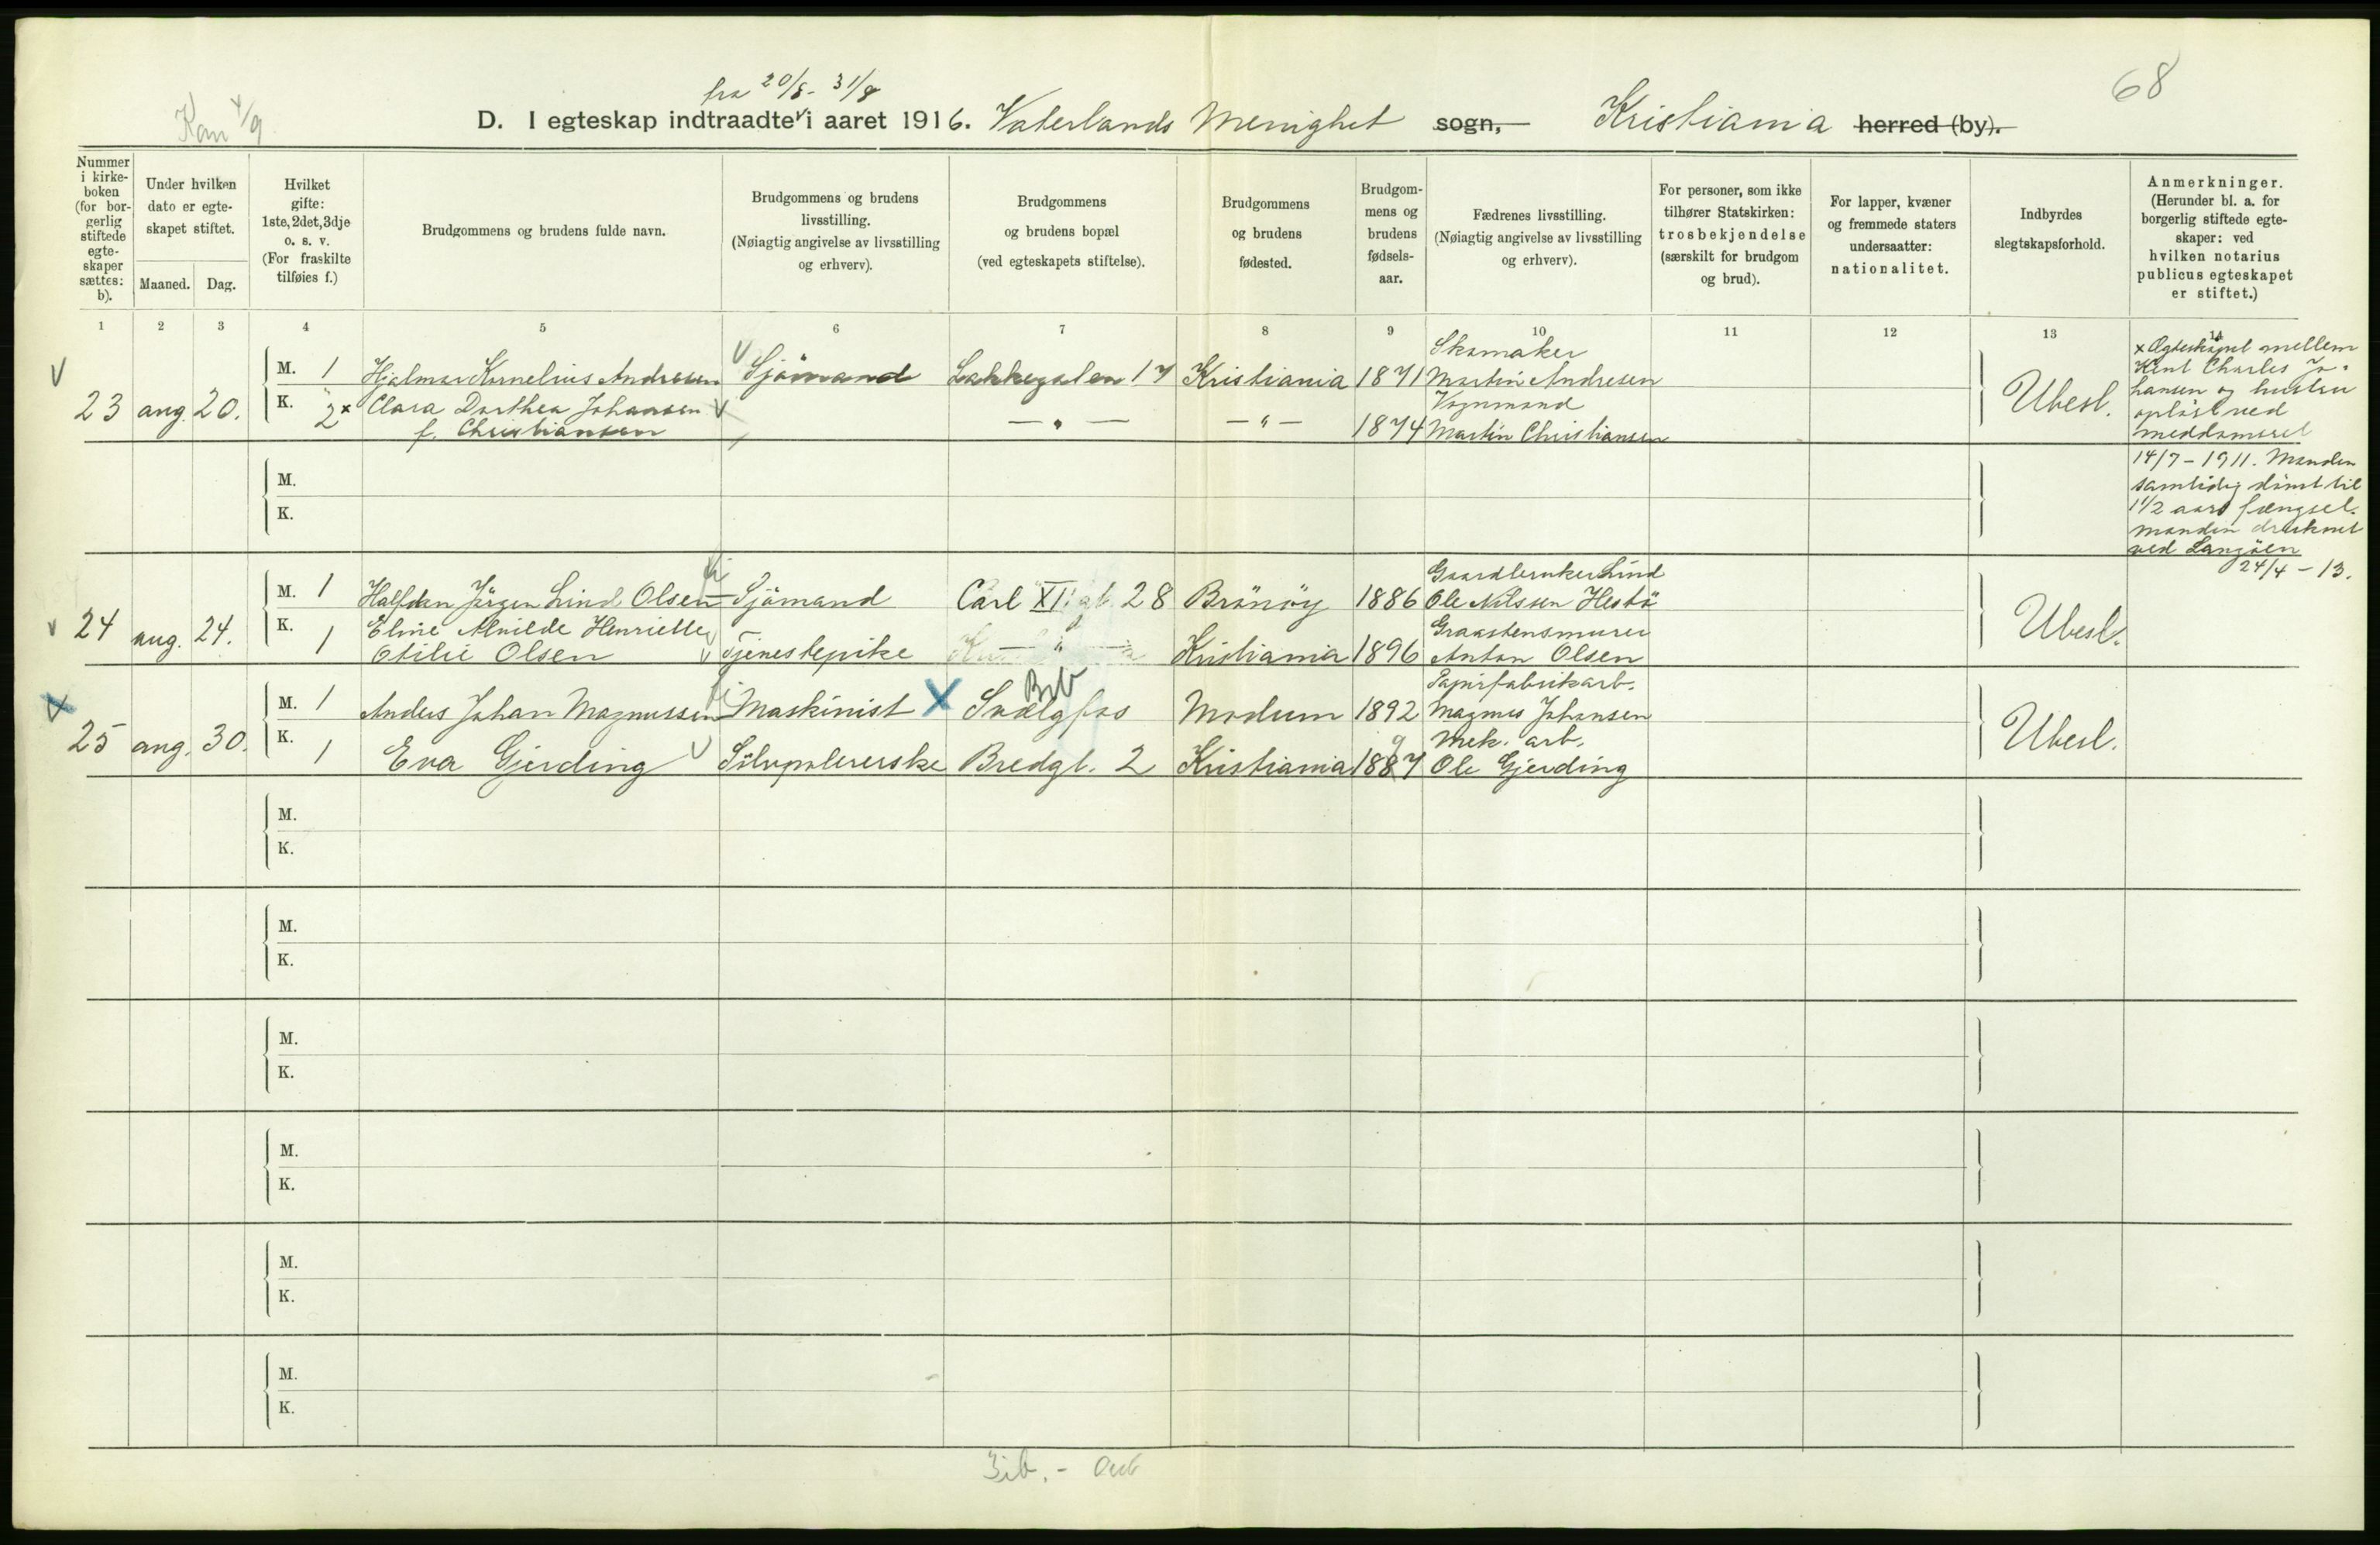 68
fra 20/8 - 31/8
Kom 4/9
D. I egteskap indtraadte i aaret 1916. Vaterlands Menighet sogn, Kristiania herred (by).
Nummer i kirkeboken (for borgerlig stiftede egteskaper sættes: b).
Under hvilken dato er egteskapet stiftet.
Maaned. Dag.
Hvilket gifte: 1ste, 2det, 3dje o. s. v. (For fraskilte tilføies f.)
Brudgommens og brudens fulde navn.
Brudgommens og brudens livsstilling. (Nøiagtig angivelse av livsstilling og erhverv).
Brudgommens og brudens bopæl (ved egteskapets stiftelse).
Brudgommens og brudens fødested.
Brudgommens og brudens fødselsaar.
Fædrenes livsstilling. (Nøiagtig angivelse av livsstilling og erhverv).
For personer, som ikke tilhører Statskirken: trosbekjendelse (særskilt for brudgom og brud).
For lapper, kvæner og fremmede staters undersaatter: nationalitet.
Indbyrdes slegtskapsforhold.
Anmerkninger. (Herunder bl. a. for borgerlig stiftede egteskaper: ved hvilken notarius publicus egteskapet er stiftet.)
1 2 3 4 5 6 7 8 9 10 11 12 13 14
Skomaker
M. 1 Hjalmar Kornelius Andresen Sjömand Lakkegaten 17 Kristiania 1871 Martin Andresen
23 aug. 20. Ubesl.
Vognmand
K. 2x Clara Dorthea Johansen f. Christiansen — " — — " — 1874 Martin Christiansen
x Ægteskapet mellem
Knut Charles Jo-
hansen og hustru
opløst ved
meddomsret
14/7 - 1911. Manden
samtidig dömt til
1 1/2 aars fængsel.
Manden druknet
ved Langöen
24/4 - 13.
M.
K.
Gaardbruker Lind
M. 1 Halfdan Jörgen Lind Olsen Sjömand Carl XI: gt. 28 Brönöy 1886 Ole Nilssen Hestö
24 aug. 24. Ubesl.
Graastensmurer
K. 1 Eline Alvilde Henriette Otilie Olsen Tjenestepike — " — Kristiania 1896 Anton Olsen
Papirfabrikarb.
M. 1 Anders Johan Magnussen Maskinist X Svælgfos Modum 1892 Magnus Johansen
25 aug. 30. Ubesl.
Mek. arb.
K. 1 Eva Gjerding Sölvpolererske Bredgt. 2 Kristiania 1887 Ole Gjerding
M.
K.
M.
K.
M.
K.
M.
K.
M.
K.
M.
K.